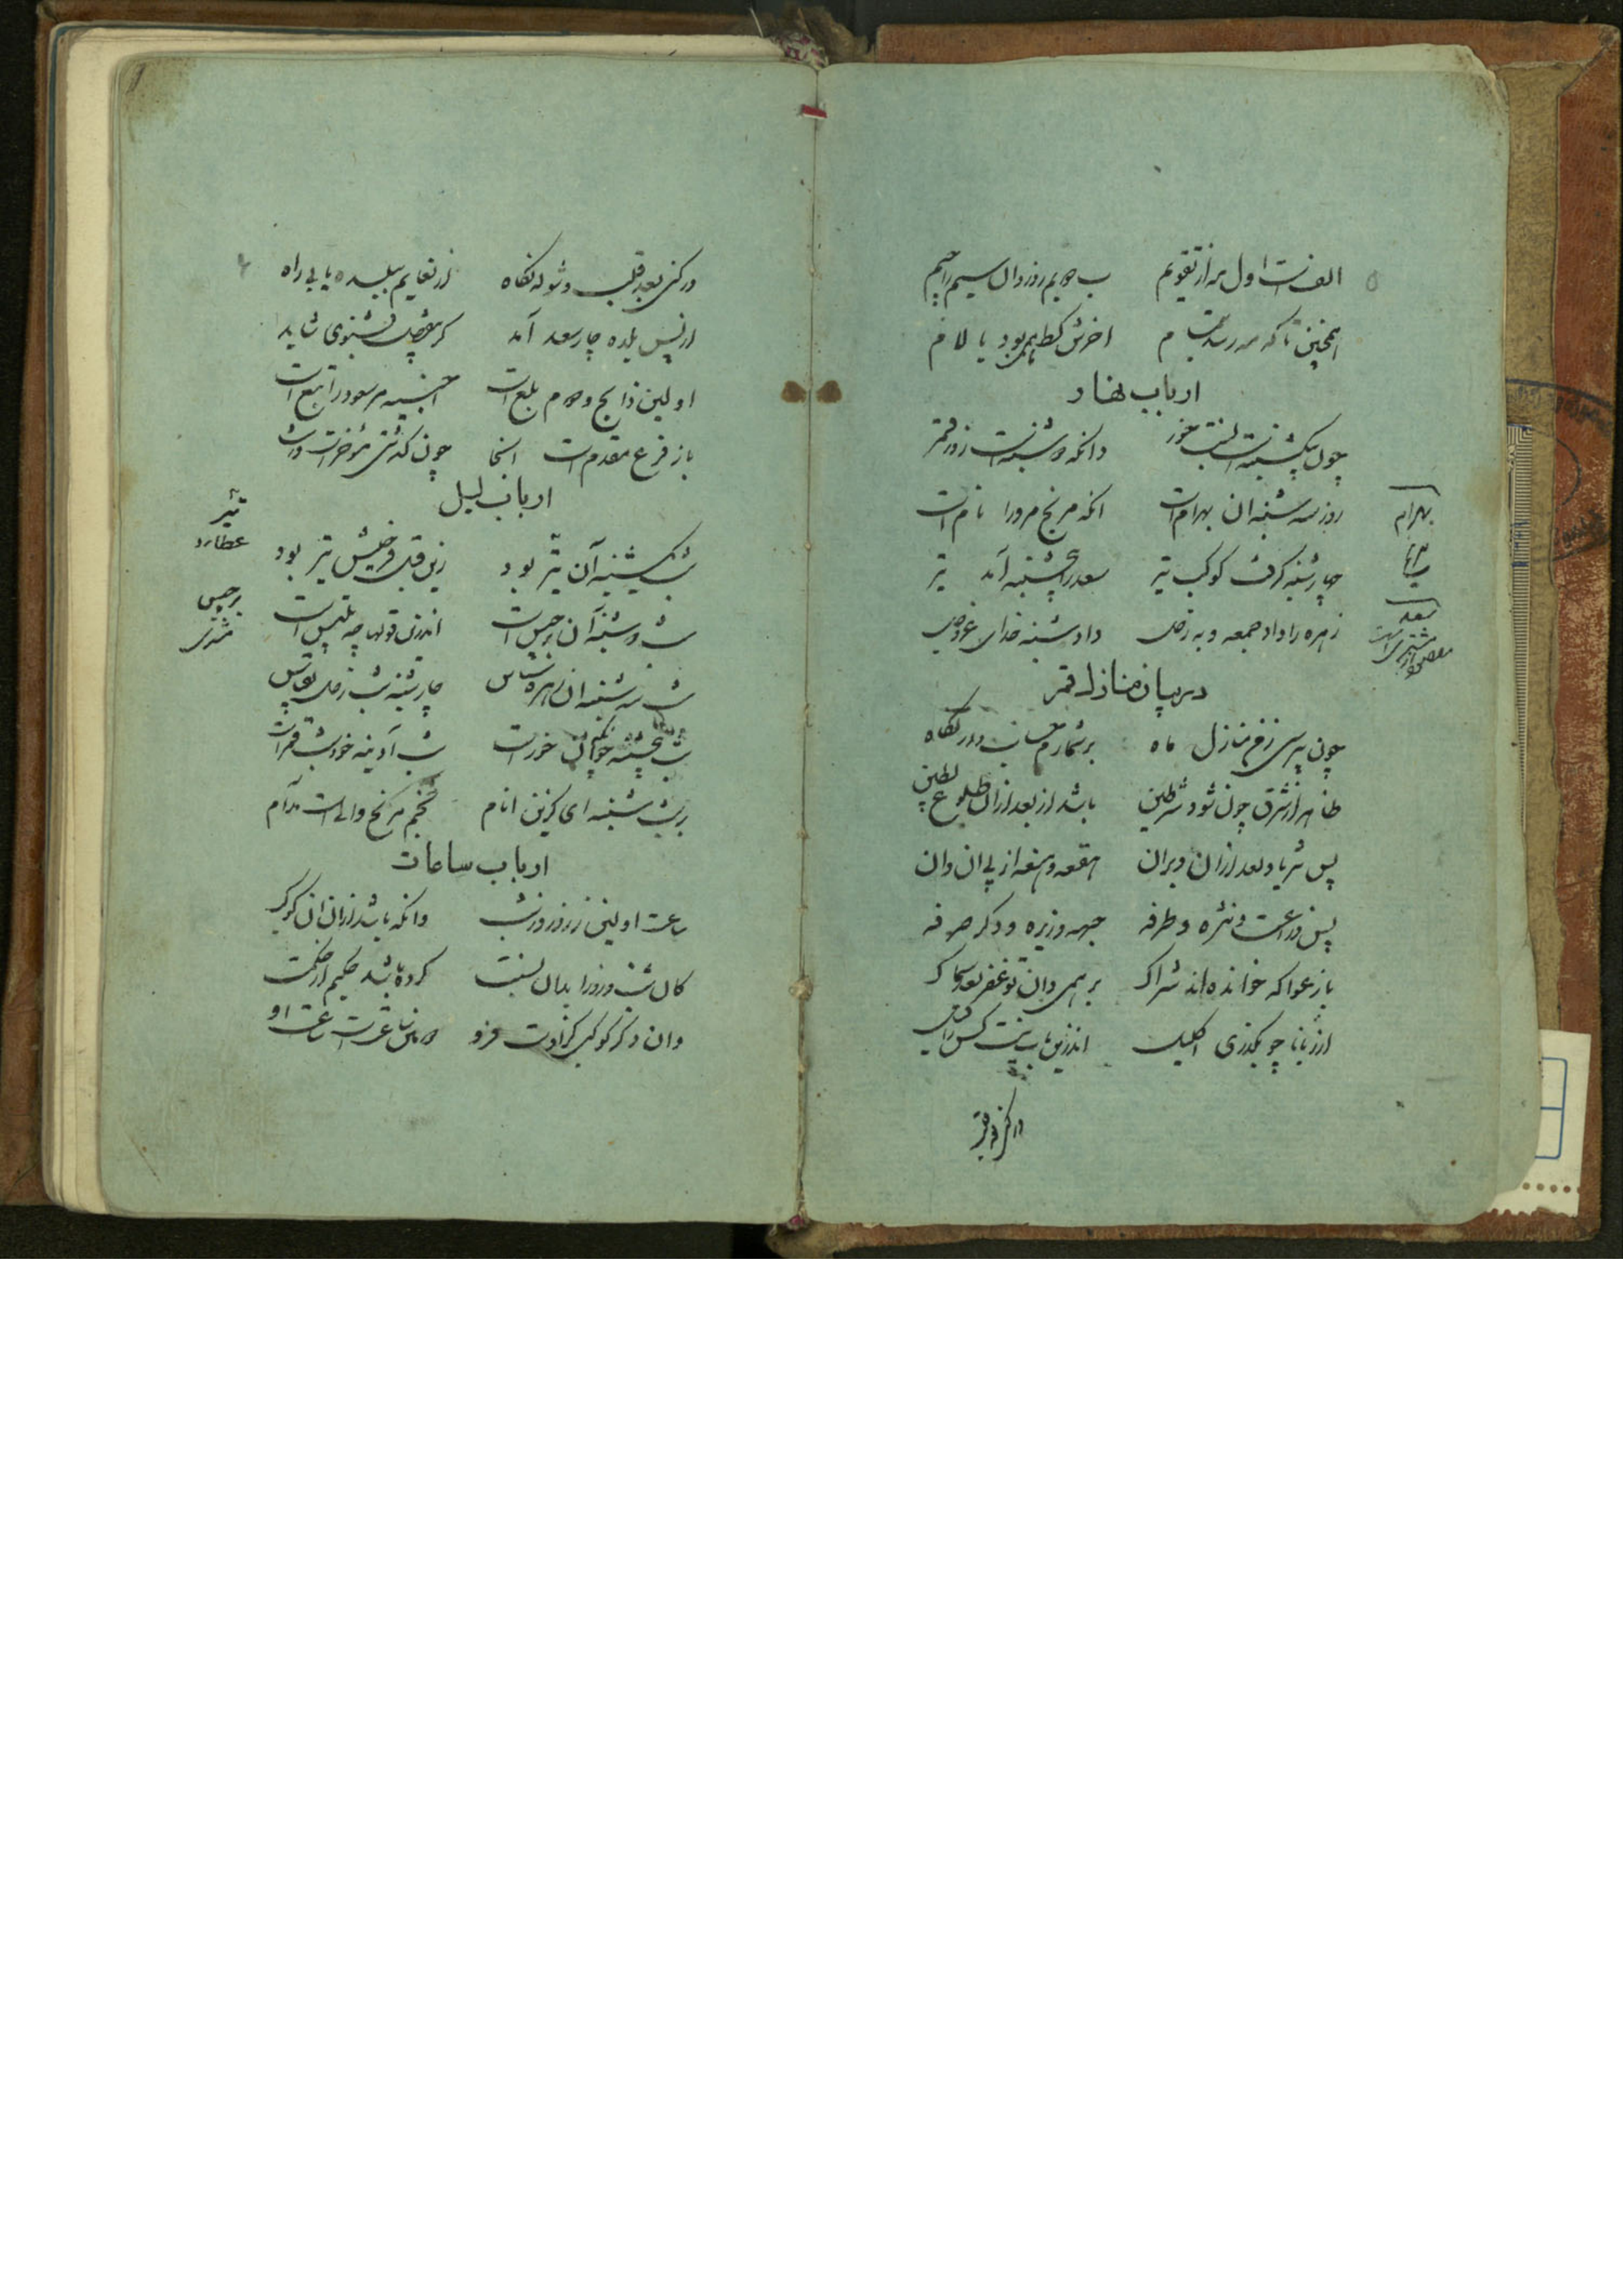 الفست اول مه از تقویم ب دویم روز دال سیم راجیم
همچنین تا که مه رسد بتمام اخرش کط همی بود یا لام
ارباب نهار
چون یکشنبه است نسبت خور دانکه دوشنبه است زور قمر
روز سه شنبه ان بهرام است انکه مریخ مرورا نام است
بهرام
چارشنبه گرفت کوکب تیر سعد را پنجشنبه آمد تیر
زهره را داد جمعه و به زحل داد شنبه خدای عز و جل
سعد
مقصود از مشتری است
در بیان منازل قمر
چون بپرسی ز من منازل ماه برشمارم حساب دار نگاه
ظاهر از شرق چون شود شرطین باشد از بعد ازان طلوع بطین
پس ثریا و بعد ازان دبران هقعه و هنعه از پی ان دان
پس ذراعست و نثره و طرفه جبهه و زبره و دکر صرفه
باز عوا که خوانده اند شراک برهمی دان تو غفر بعد سماک
از زبانا چو بگذری اکلیل اندرین باب نیست کس را قیل
در کنی بعد قلب و شوله نگاه از نعایم ببلده یابی راه
از پس بلده چار سعد آمد کر مفصل بشنوی شاید
اولین ذابح و دوم بلع است اخبیه مر سعود را تبع است
باز فرع مقدم است اینجا چون گذشتی مؤخر است و رشا
ارباب لیل
شب یکشنبه آن تیر بود زین قبل فرخیش تیر بود
تیر
عطارد
شب دوشنبه آن برجیس است اندرین قولها چه تلبیس است
برجیس
مشتری
شب سه شنبه ان زهره شناس چارشنبه شب زحل بقیاس
شب پنجشنبه خود ان خورست شب آدینه خود شب قمر است
بر شب شنبه ای گزین انام نجم مریخ والی است مدام
ارباب ساعات
ساعت اولین ز روز و ز شب دانکه باشد ازان ان کوکب
کان شب و روز را بدان نسبت کرده باشد حکیم از حکمت
وان دکر کوکبی کز اوست فرو دومین ساعت است ساعت او